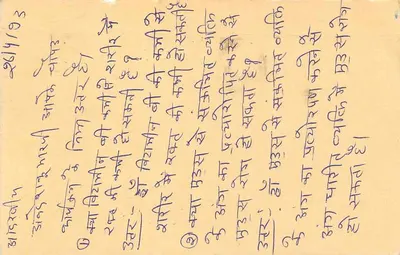 आदरणीय 26/4/03
आपके
कार्यक्रम के निम्न उत्तर है।
① क्या विटामिन बी की कमी से शरीर में
रक्त की कमी हो सकती है?
उत्तर:- हाँ विटामिन बी की कमी से
शरीर में रक्त की कमी हो सकती है
② क्या एड्स से संक्रमित व्यक्ति
के अंग का प्रत्यारोपित करने से
एड्स रोग हो सकता है?
उत्तर:- हाँ एड्स से संक्रमित व्यक्ति
के अंग का प्रत्यारोपण करने से
अंग व्यक्ति के एड्स रोग
हो सकता है।